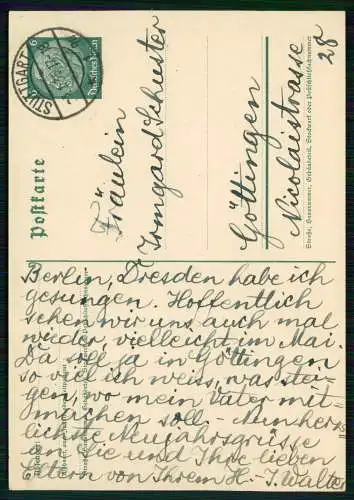 6
Deutsches Reich
STUTTGART
Postkarte
Fräulein
Irmgard Schuster
Göttingen
Nicolaistrasse
28
Straße, Hausnummer, Gebäudeteil, Stockwerk oder Postschließfachnummer
Berlin, Dresden habe ich
gesungen. Hoffentlich
sehen wir uns auch mal
wieder, vielleicht im Mai.
Da soll ja in Göttingen
so viel ich weiss, was stei-
gen, wo mein Vater mit-
machen soll. - Nun herz-
lichste Neujahrsgrüsse
an Sie und Ihre lieben
Eltern von Ihrem H.-J. Walter
Absender: